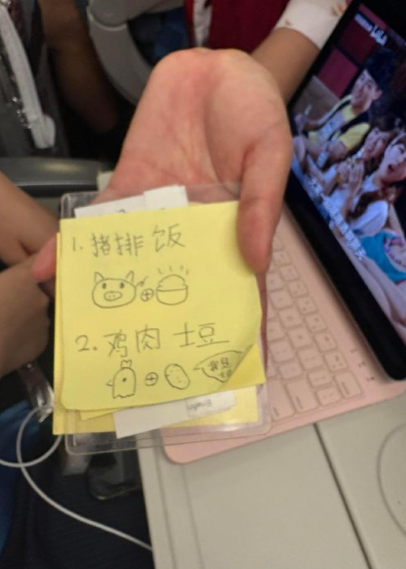 1. 猪排饭
2. 鸡肉 土豆